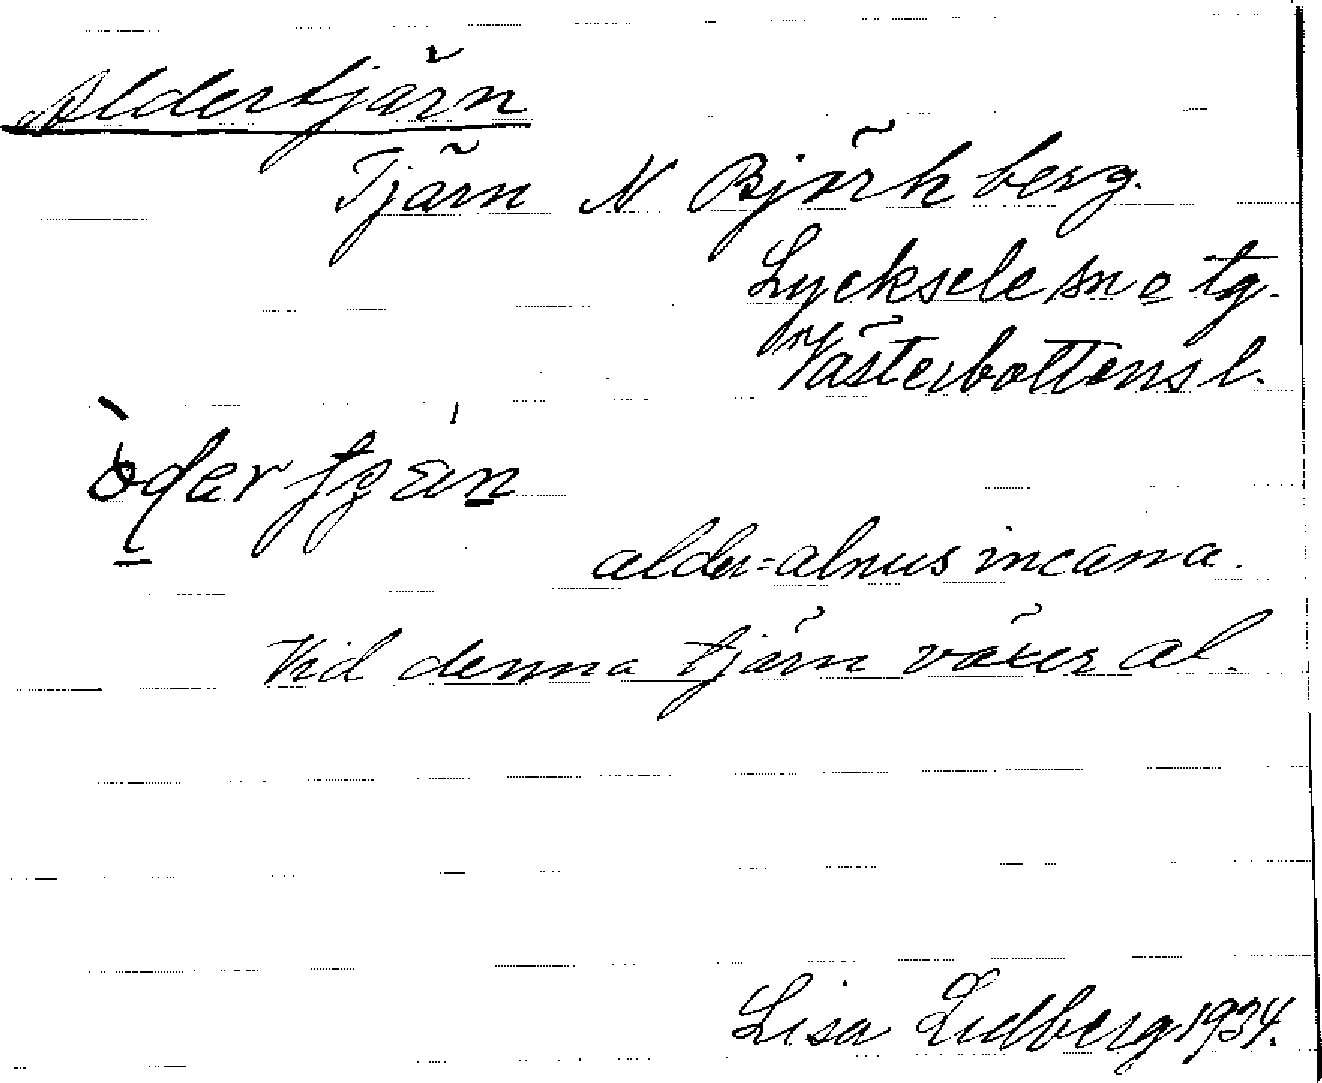 Aldertjärn
Tjärn N Björkberg.
Lycksele sn o tg.
Västerbottens l.
alder=alnus incana.
Vid denna tjärn växer al.
Lisa Lidberg 1934.